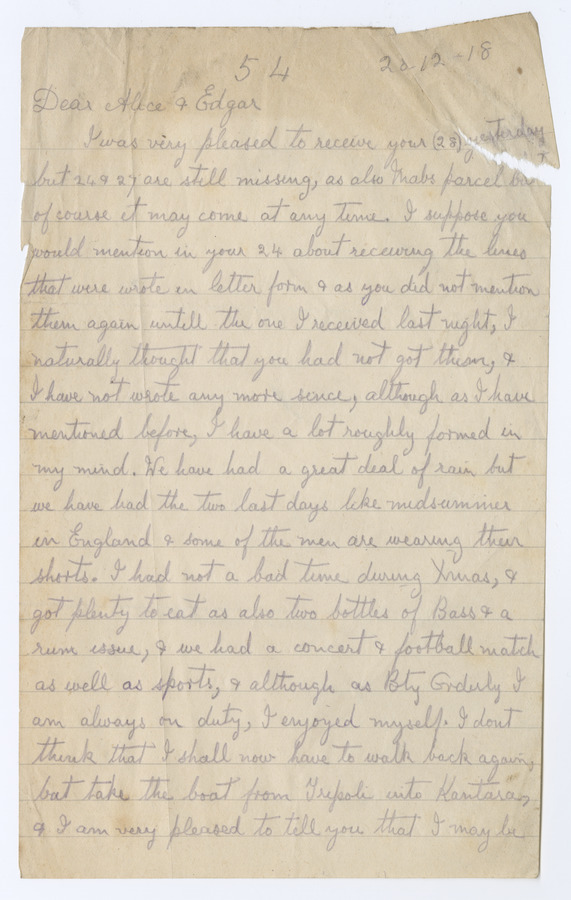 54
12-18
Dear Alice & Edgar
I was very pleased to receive your (28) yesterday
but 24 & 27 are still missing, as also Mabs parcel but
of course it may come at any time. I suppose you
would mention in your 24 about receiving the lines
that were wrote in letter form & as you did not mention
them again untill the one I received last night, I
naturally thought that you had not got them, &
I have not wrote any more since, although as I have
mentioned before, I have a lot roughly formed in
my mind. We have had a great deal of rain but
we have had the two last days like midsummer
in England & some of the men are wearing their
shorts. I had not a bad time during Xmas, &
got plenty to eat as also two bottles of Bass & a
rum issue, & we had a concert & football match
as well as sports, & although as Bty Orderly I
am always on duty, I enjoyed myself. I dont
think that I shall now have to walk back again,
but take the boat from Tripoli into Kantara,
& I am very pleased to tell you that I may be